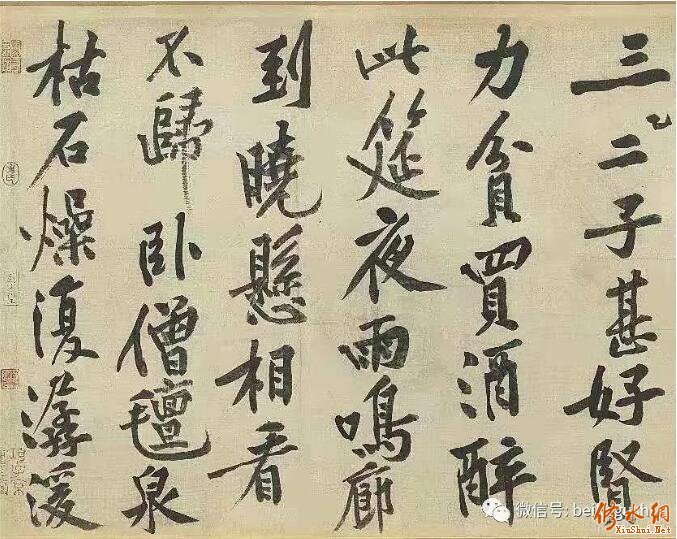 三二子甚好賢
力貧買酒醉
此筵夜雨鳴廊
到曉懸相看
不歸卧僧氈泉
枯石燥復潺湲
微信号:
修水網
XiuShui.Net